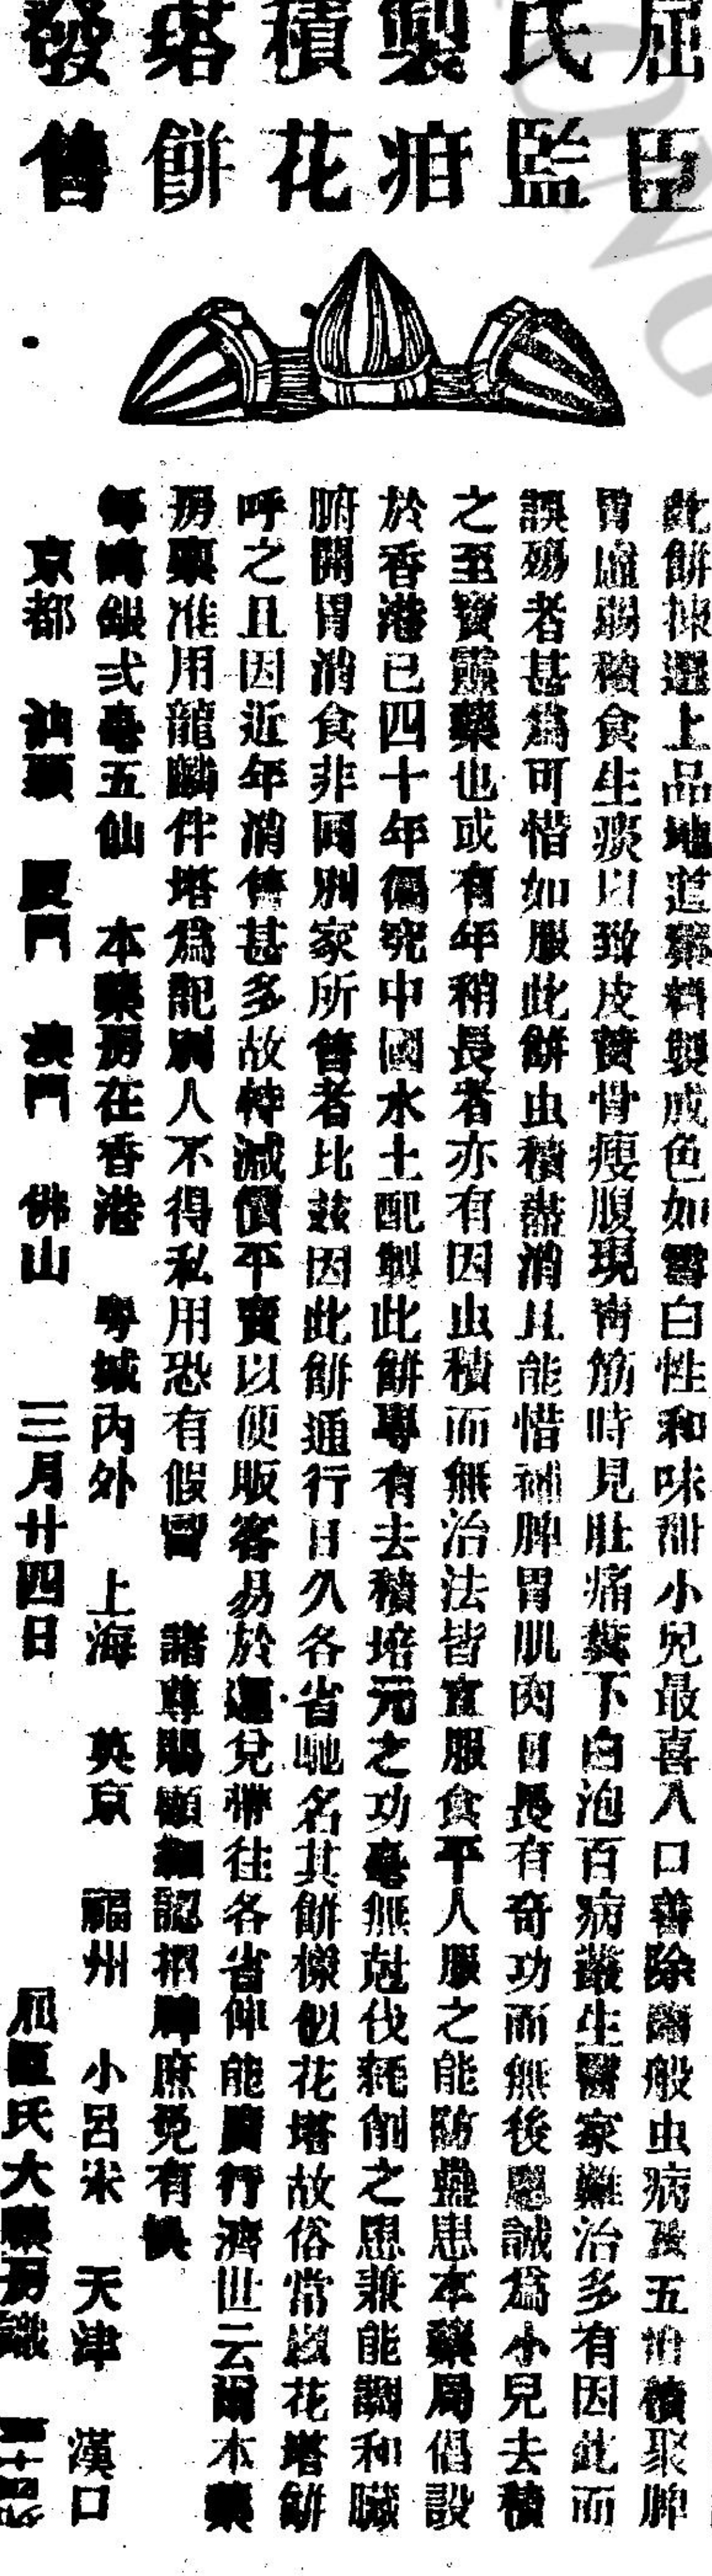 屈臣
氏監
製疳
積花
塔餅
發售
此餅揀選上品地道藥料製成色如雪白性和味甜小兒最喜入口善除諸般虫病及五疳積聚脾
胃虛弱積食生痰以致皮黃骨瘦腹現青筋時見肚痛糞下白泡百病叢生醫家難治多有因此而
誤殤者甚為可惜如服此餅虫積盡消且能惜補脾胃肌肉日長有奇功而無後患誠為小兒去積
之至寶靈藥也或有年稍長者亦有因虫積而無治法皆宜服食平人服之能防蠱患本藥局倡設
於香港已四十年偏究中國水土配製此餅專有去積培元之功毫無尅伐耗削之患兼能調和臟
腑開胃消食非同別家所售者比茲因此餅通行日久各省馳名其餅樣似花塔故俗常以花塔餅
呼之且因近年消售甚多故特減價平賣以便販客易於運兌帶往各省俾能廣行濟世云爾本藥
房稟准用龍麟伴塔為記別人不得私用恐有假冒 諸尊賜顧細認招牌庶免有悞
每 銀弍毫五仙 本藥房在香港 粵城內外 上海 英京 福州 小呂宋 天津 漢口
京都 汕頭 厦門 澳門 佛山 三月廿四日 屈臣氏大藥房謹